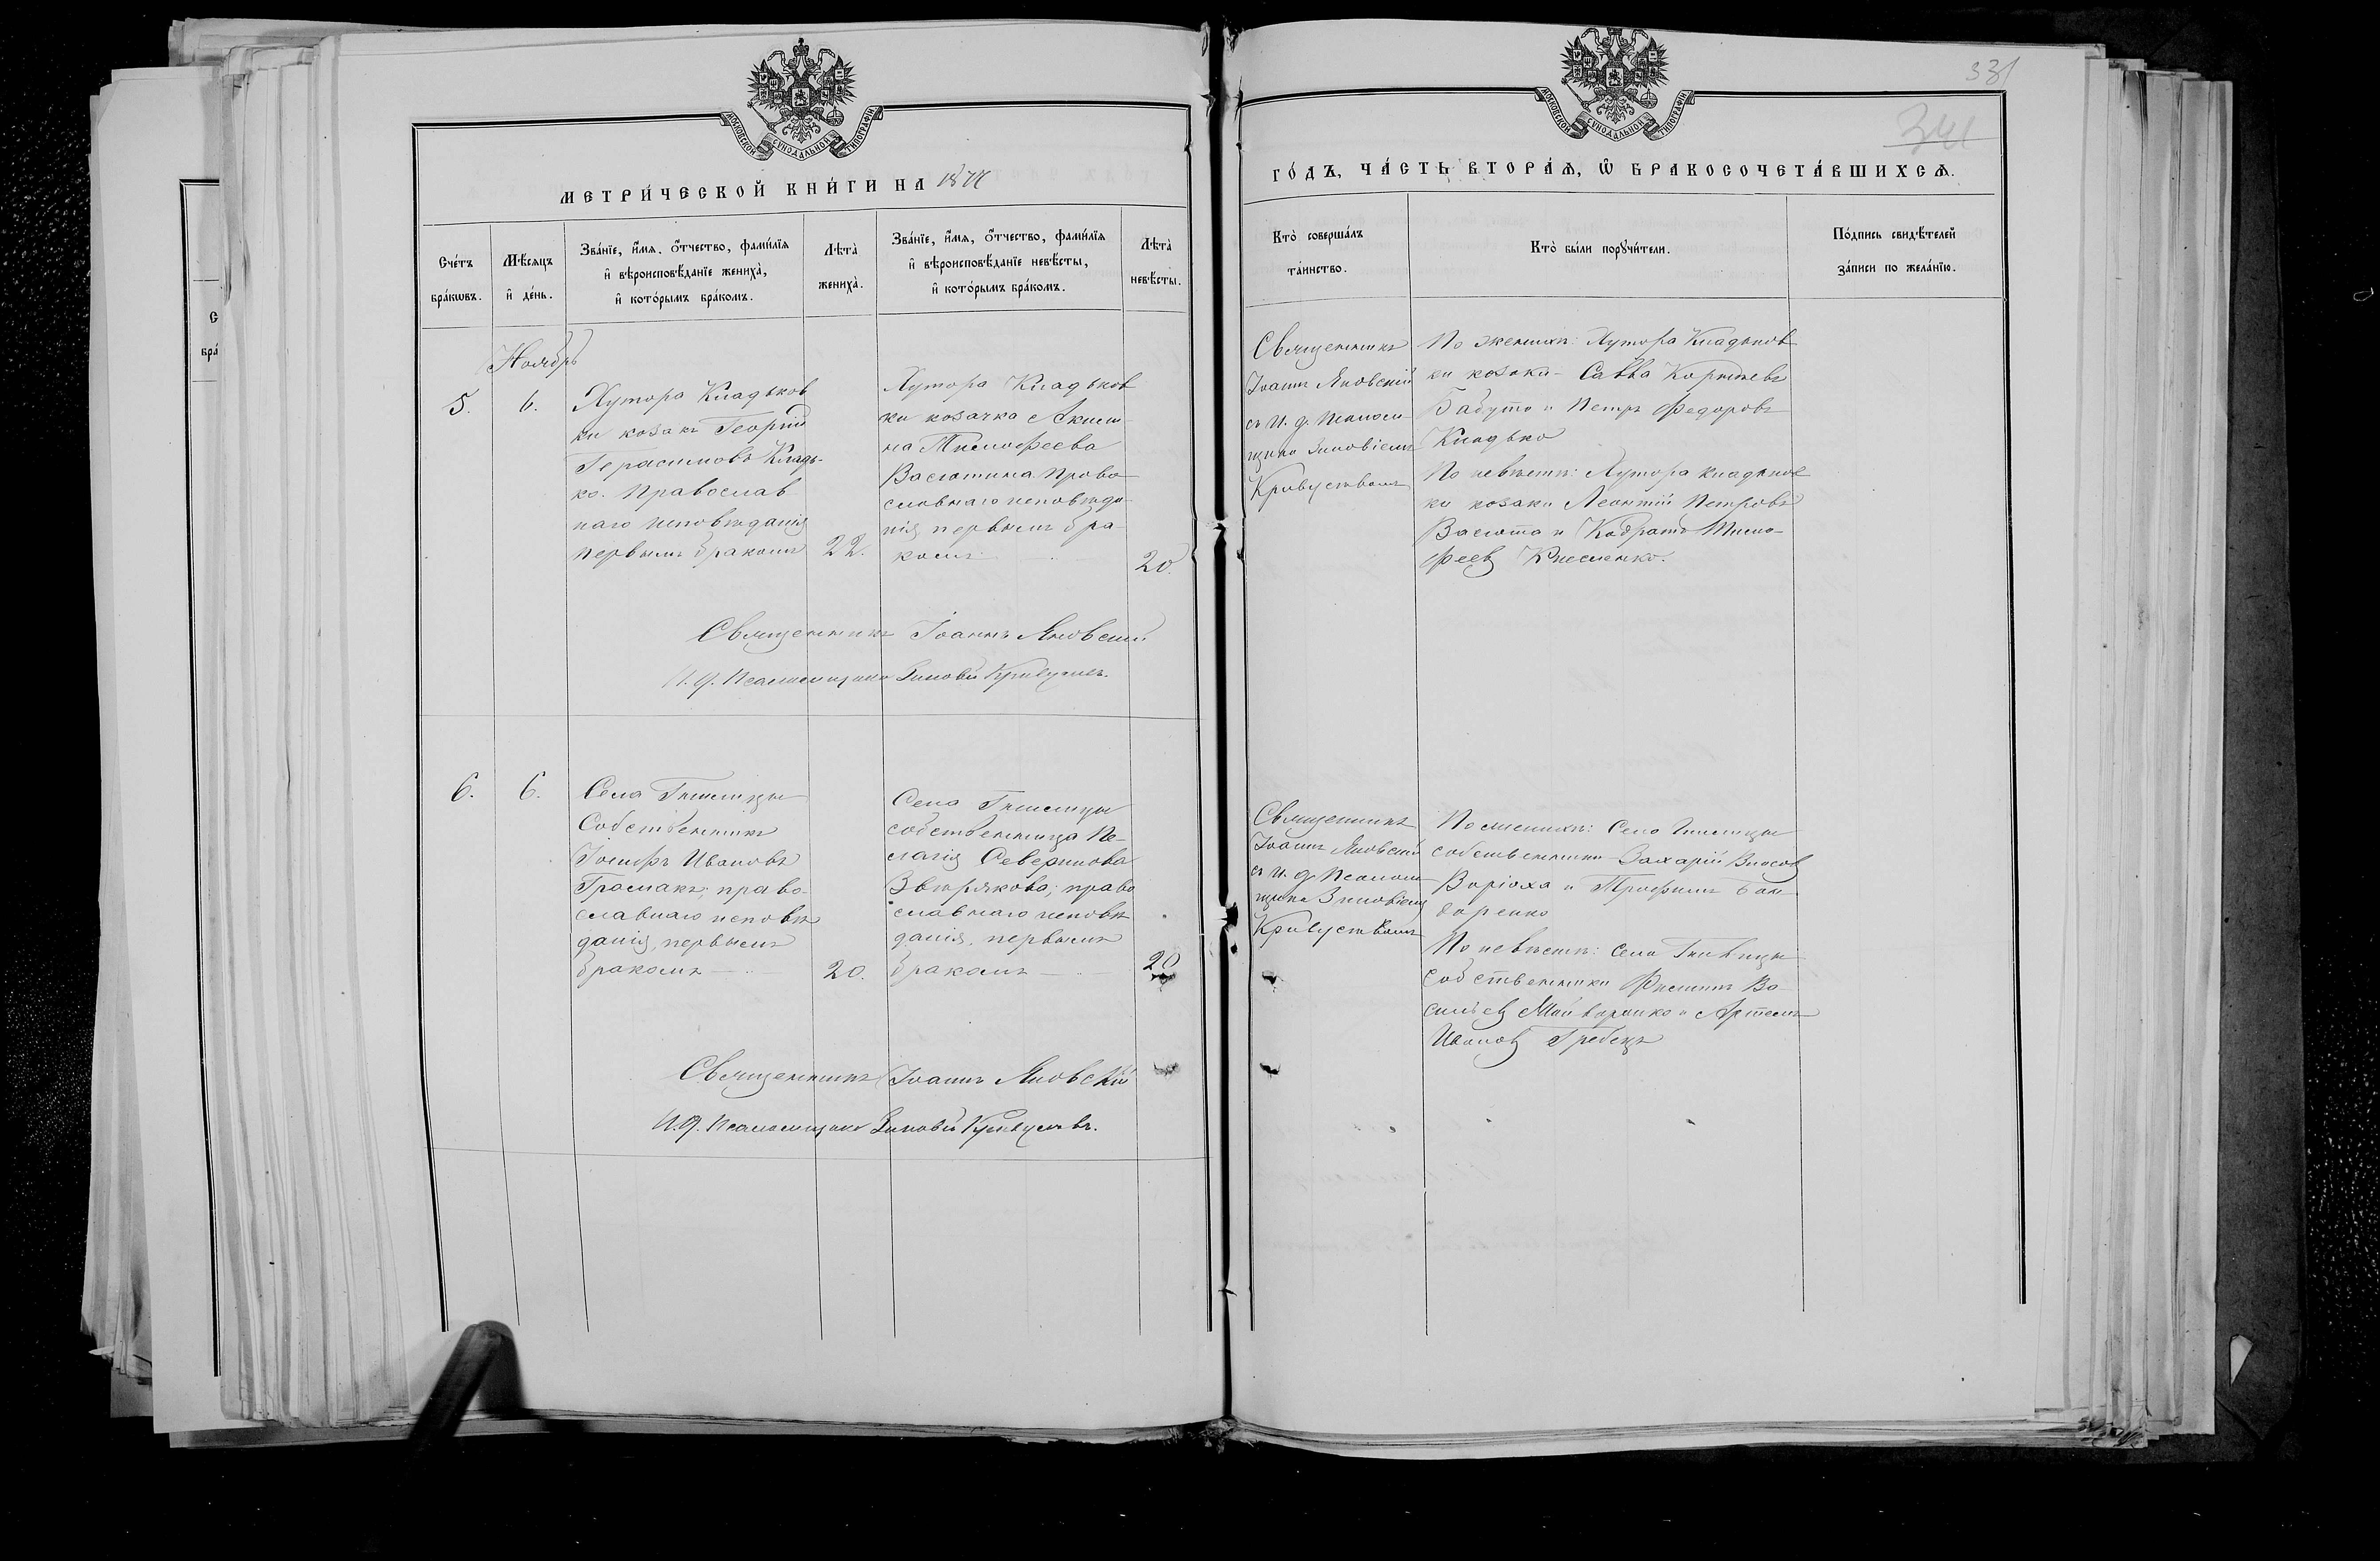 МОСКОВСКОЙ СѴНОДАЛЬНОЙ ТИПОГРАФІИ
МЕТРИ́ЧЕСКОЙ КНИ́ГИ НА 1877
Сче́тъ бра́кѡвъ.
Мѣ́сяцъ и҆ де́нь.
Зва́нїе, и҆́мя, ѻ҆́тчество, фами́лїя
и҆ вѣроисповѣ́данїе жениха̀,
и҆ кото́рымъ бра́комъ.
Лѣта̀
жениха̀.
Зва́нїе, и҆́мя, ѻ҆́тчество, фами́лїя
и҆ вѣроисповѣ́данїе невѣ́сты,
и҆ кото́рымъ бра́комъ.
Лѣта̀
невѣ́сты.
Ноябрь
5.
6.
Хутора Кладьков
ки козакъ Георгій
Герасимовъ Кладь-
ко. Православ
наго исповѣданія
первымъ бракомъ
22.
Хутора Кладьков
ки козачка Акили-
на Тимофеева
Васютина Право
славнаго исповѣда
нія первымъ бра
комъ
20.
Священникъ Іоаннъ Яновскій
И. д. Псаломщика Зиновій
6.
6.
Села Гнилицы
Собственникъ
Іосифъ Ивановъ
Грамакъ; право-
славнаго исповѣ
данія, первымъ
бракомъ
20.
Села Гнилицы
собственница Пе-
лагія Северинова
Звѣрякова; право
славнаго исповѣ
данія, первымъ
бракомъ
20
Священникъ Іоаннъ Яновскій
И. д. Псаломщика Зиновій
331
341
МОСКОВСКОЙ СѴНОДАЛЬНОЙ ТИПОГРАФІИ
ГО́ДЪ, ЧА́СТЬ ВТОРА́Я, Ѡ҆ БРАКОСОЧЕТА́ВШИХСЯ.
Кто̀ соверша́лъ
та́инство.
Кто̀ бы́ли порꙋчи́тели.
По́дпись свидѣ́телей
за́писи по жела́нїю.
Священникъ
Іоаннъ Яновскій
съ и. д. Псалом
щика Зиновіемъ
По женихѣ: Хутора Кладьков
ки козаки - Савва Корнѣевъ
Бабута и Петръ Федоровъ
Кладько
По невѣстѣ: Хутора Кладьков
ки козаки Леонтій Петровъ
Васюта и Кодратъ Тимо-
феев Кисленко.
Священникъ
Іоаннъ Яновскій
съ и. д. Псалом
щика Зиновіемъ
По женихѣ: Села Гнилицы
собственники Захарій Власов
и Трофимъ Бон
даренко
По невѣстѣ: Села Гнилицы
Собственники Филипъ Ва
сильев и Артемъ
Иванов Гребецъ